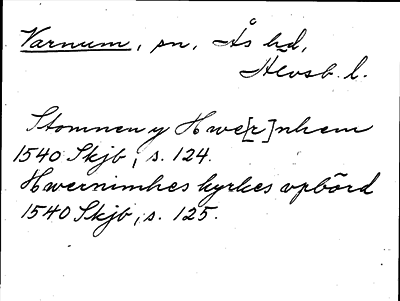 Varnum, sn, Ås hd,
Älvsb. l.
Stomnen y Hwe[r]nhem
1540 Skjb, s. 124.
Hwernimhes kyrkes vpbörd
1540 Skjb, s. 125.